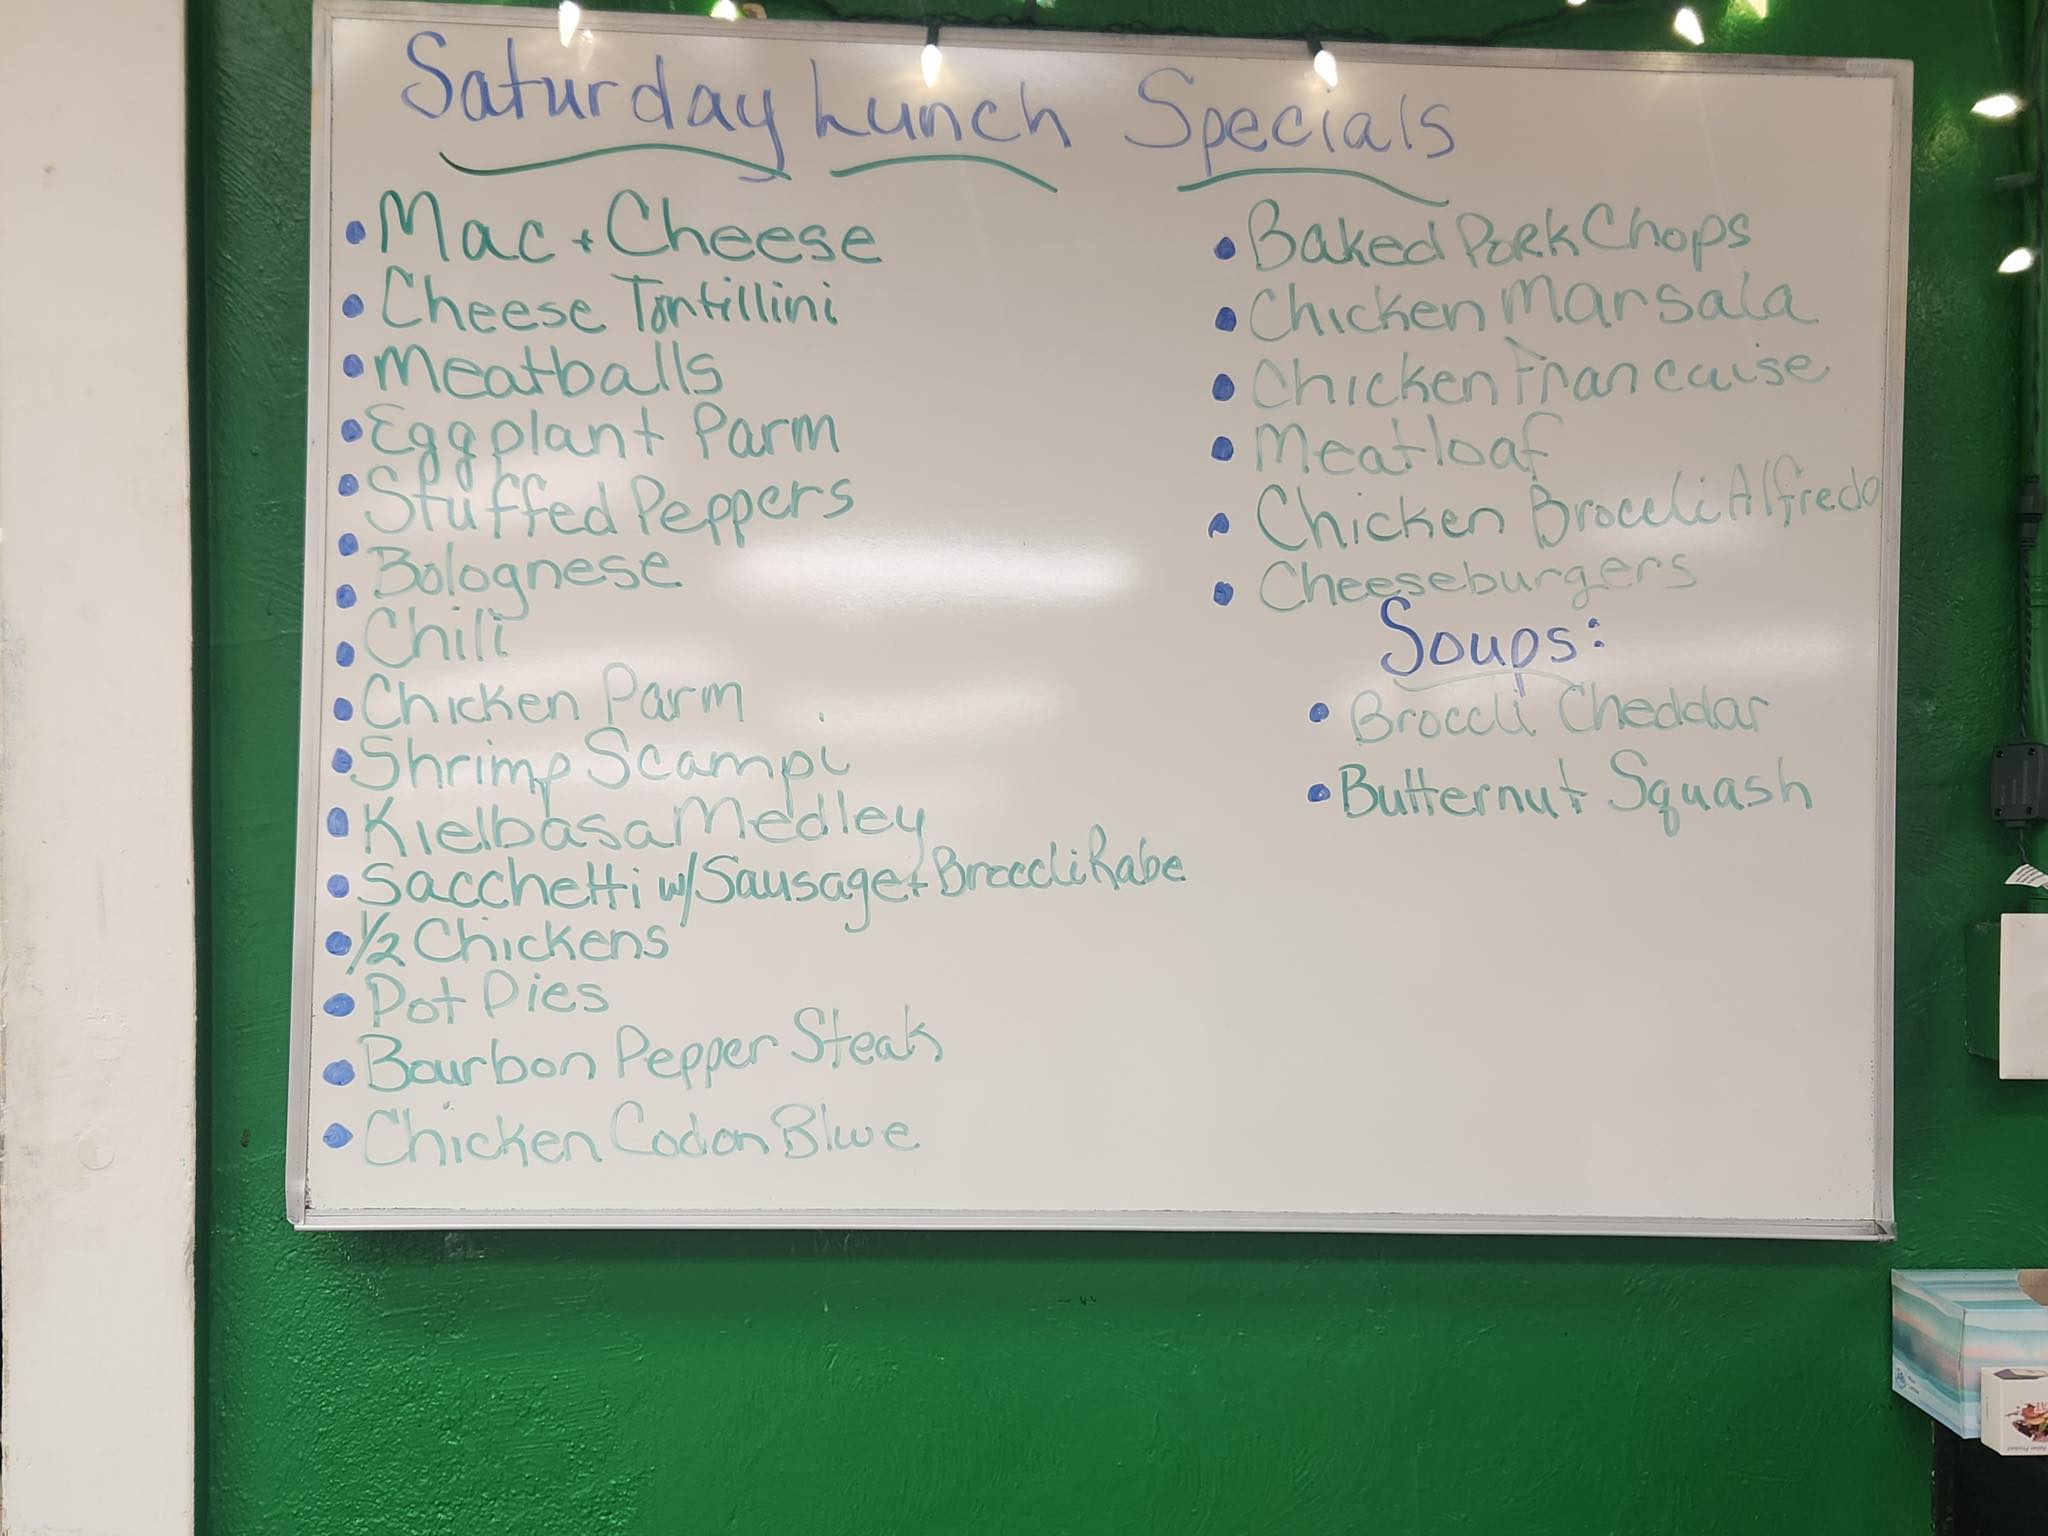 Saturday Lunch Specials
• Mac + Cheese
• Cheese Tortillini
• Meatballs
• Eggplant Parm
• Stuffed Peppers
• Bolognese
• Chili
• Chicken Parm
• Shrimp Scampi
• Kielbasa Medley
• Sacchetti w/ Sausage + Broccli Rabe
• 1/2 Chickens
• Pot Pies
• Bourbon Pepper Steak
• Chicken Codon Blue
• Baked Pork Chops
• Chicken Marsala
• Chicken Francaise
• Meatloaf
• Chicken Broccli Alfredo
• Cheeseburgers
Soups:
• Broccli Cheddar
• Butternut Squash